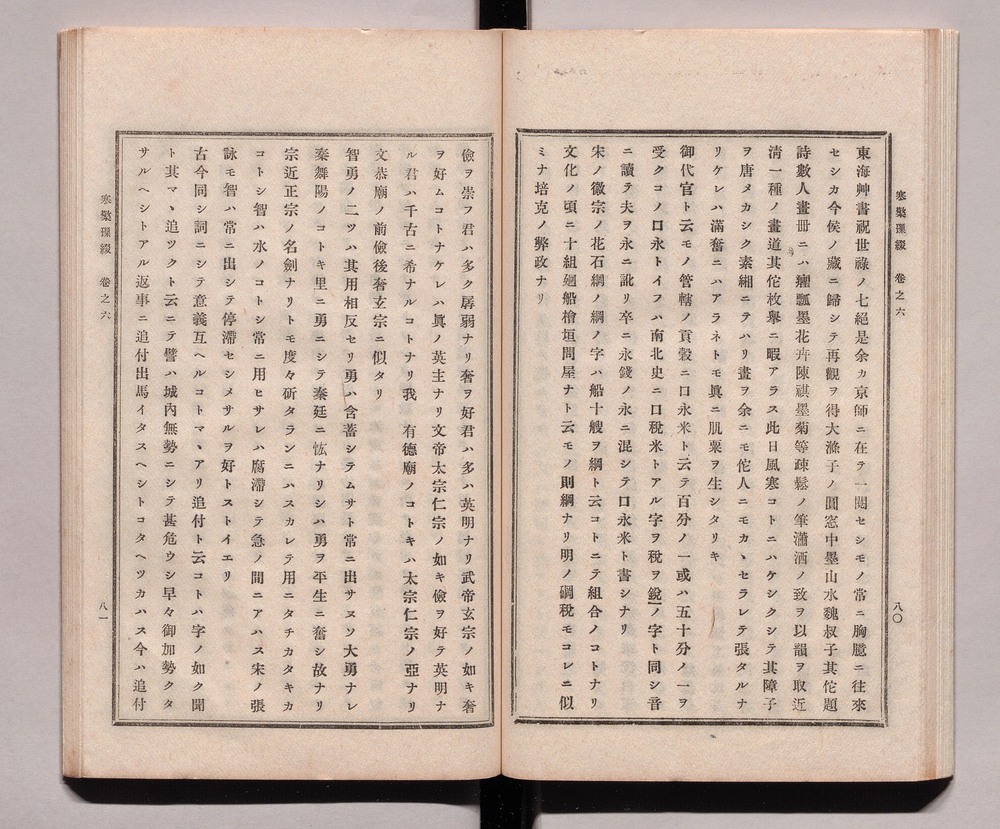 寒檠璅綴　卷之六
八〇
東海艸書祝世祿ノ七絕是余カ京師ニ在テ一閱セシモノ常ニ胸臆ニ往來
セシカ今侯ノ藏ニ歸シテ再觀ヲ得大滌子ノ圓窓中墨山水魏叔子其佗題
詩數人畫冊ニハ癭瓢墨花卉陳祺墨菊等疎鬆ノ筆瀟洒ノ致ヲ以韻ヲ取近
淸一種ノ畫道其佗枚擧ニ暇アラス此日風寒コトニハケシクシテ其障子
ヲ唐メカシク素絹ニテハリ畫ヲ余ニモ佗人ニモカヽセラレテ張タルナ
リケレハ滿奮ニハアラネトモ眞ニ肌粟ヲ生シタリキ
御代官ト云モノ管轄ノ貢穀ニ口永米ト云テ百分ノ一或ハ五十分ノ一ヲ
受クコノ口永トイフハ南北史ニ口稅米トアル字ヲ稅ヲ銳ノ字ト同シ音
ニ讀テ夫ヲ永ニ訛リ卒ニ永錢ノ永ニ混シテ口永米ト書シナリ
宋ノ徽宗ノ花石綱ノ綱ノ字ハ船十艘ヲ綱ト云コトニテ組合ノコトナリ
文化ノ頃ニ十組廻船檜垣問屋ナト云モノ則綱ナリ明ノ礀稅モコレニ似
ミナ培克ノ弊政ナリ
儉ヲ崇フ君ハ多ク孱弱ナリ奢ヲ好君ハ多ハ英明ナリ武帝玄宗ノ如キ奢
ヲ好ムコトナケレハ眞ノ英主ナリ文帝太宗仁宗ノ如キ儉ヲ好テ英明ナ
ル君ハ千古ニ希ナルコトナリ我　有德廟ノコトキハ太宗仁宗ノ亞ナリ
文恭廟ノ前儉後奢玄宗ニ似タリ
智勇ノ二ツハ其用相反セリ勇ハ含蓄シテムサト常ニ出サヌソ大勇ナレ
秦舞陽ノコトキ里ニ勇ニシテ秦廷ニ怯ナリシハ勇ヲ平生ニ奮シ故ナリ
宗近正宗ノ名劍ナリトモ度々斫タランニハスカレテ用ニタチカタキカ
コトシ智ハ水ノコトシ常ニ用ヒサレハ腐滯シテ急ノ間ニアハス宋ノ張
詠モ智ハ常ニ出シテ停滯セシメサルヲ好トストイエリ
古今同シ詞ニシテ意義互ヘルコトマヽアリ追付ト云コトハ字ノ如ク聞
ト其マヽ追ツクト云ニテ譬ハ城內無勢ニシテ甚危ウシ早々御加勢クタ
サルヘシトアル返事ニ追付出馬イタスヘシトコタヘツカハス今ハ追付
寒檠璅綴　卷之六
八一